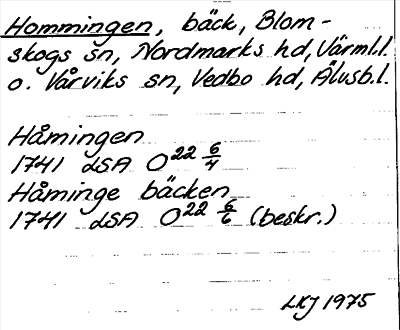 Hommingen, bäck, Blom-
skogs sn, Nordmarks hd, Värml.l.
o. Vårviks sn, Vedbo hd, Älvsb.l.
Håmingen
1741 LSA O22 6/4
Håminge bäcken
1741 LSA O22 6/6 (beskr.)
LKJ 1975